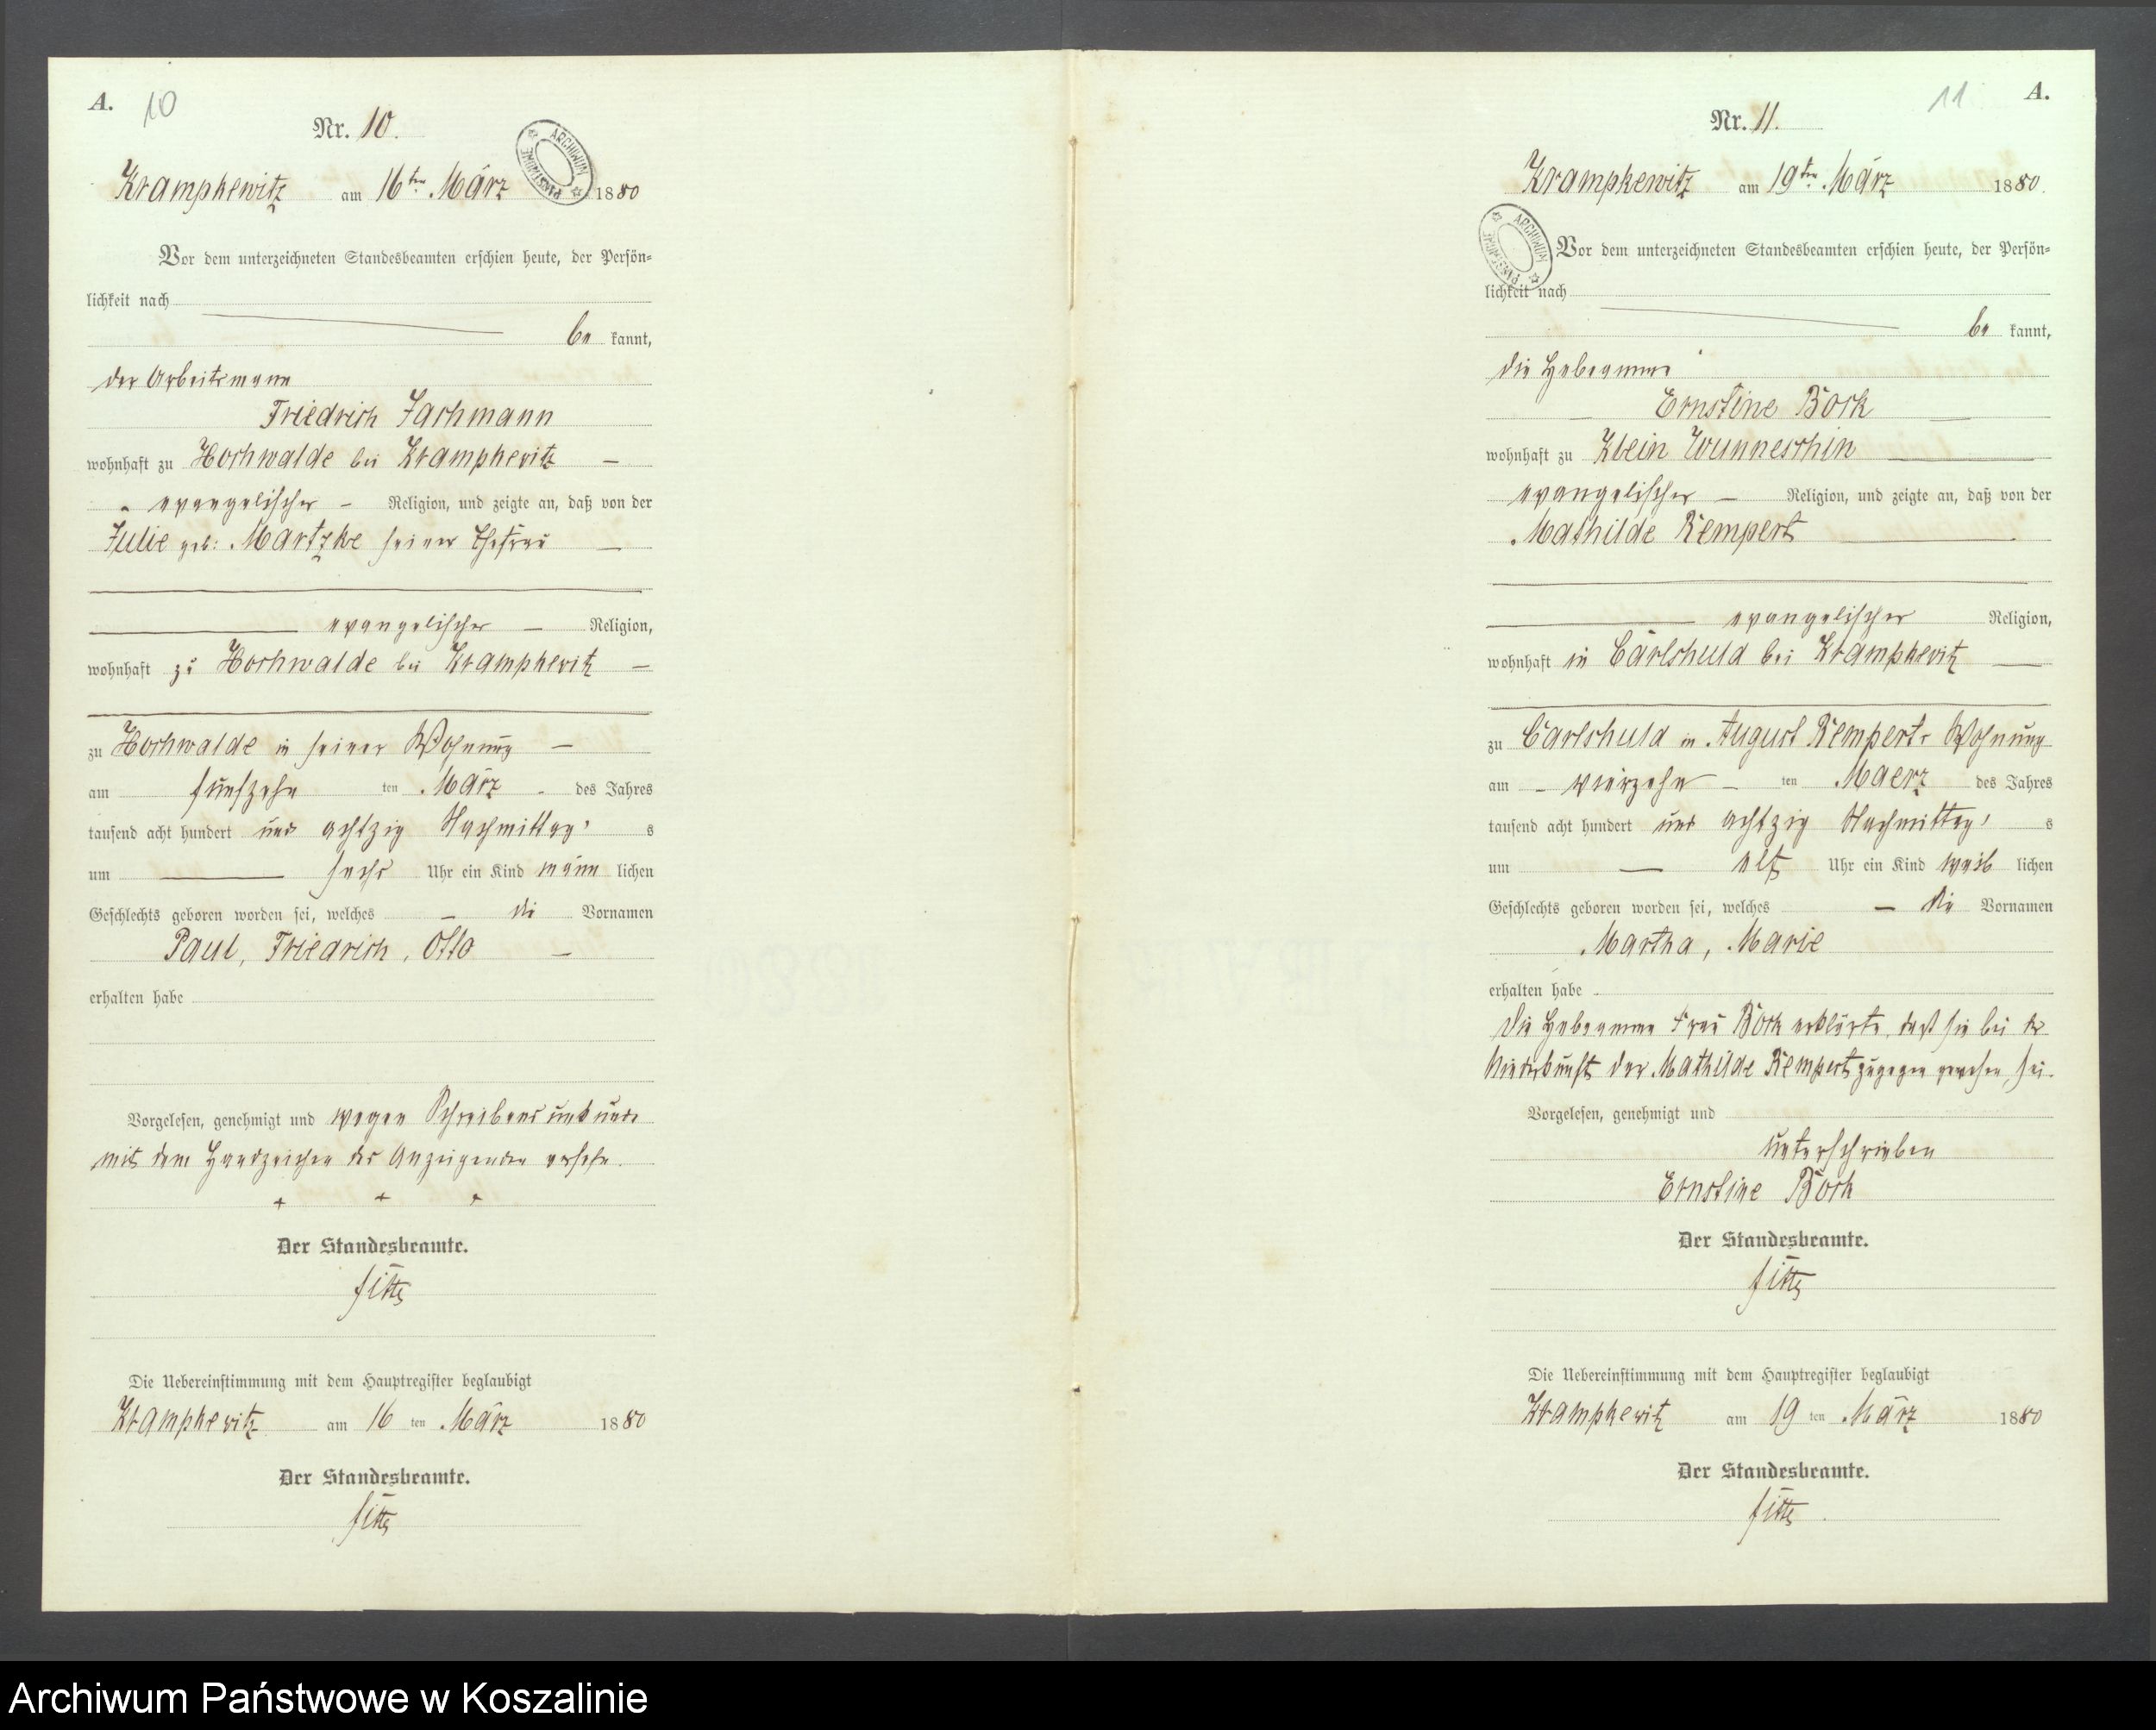 A. 10
Nr. 10.
ARCHIWUM PAŃSTWOWE
Krampkewitz am 16ten März 1880
Vor dem unterzeichneten Standesbeamten erschien heute, der Persön=
lichkeit nach
be kannt,
der Arbeitsmann
Friedrich Jachmann
wohnhaft zu Hochwalde bei Krampkewitz
evangelischer Religion, und zeigte an, daß von der
Julie geb: Martzke seiner Ehefrau
evangelischer Religion,
wohnhaft zu Hochwalde bei Krampkewitz
zu Hochwalde in seiner Wohnung
am fünfzehn ten März des Jahres
tausend acht hundert und achtzig Nachmittags
um sechs Uhr ein Kind männ lichen
Geschlechts geboren worden sei, welches die Vornamen
Paul, Friedrich, Otto
erhalten habe
Vorgelesen, genehmigt und wegen Schreibensunkunde
mit dem Handzeichen des Anzeigenden versehn.
+ + +
Der Standesbeamte.
Die Uebereinstimmung mit dem Hauptregister beglaubigt
Krampkewitz am 16 ten März 1880
Der Standesbeamte.
11 A.
Nr. 11.
Krampkewitz am 19ten März 1880.
ARCHIWUM PAŃSTWOWE
Vor dem unterzeichneten Standesbeamten erschien heute, der Persön=
lichkeit nach
be kannt,
die Hebeamme
Ernstine Bock
wohnhaft zu Klein Wunneschin
evangelischer Religion, und zeigte an, daß von der
Mathilde Rempert
evangelischer Religion,
wohnhaft in Carlshuld bei Krampkewitz
zu Carlshuld in August Remperts Wohnung
am vierzehn ten Maerz des Jahres
tausend acht hundert und achtzig Nachmittags
um elf Uhr ein Kind weib lichen
Geschlechts geboren worden sei, welches die Vornamen
Martha, Marie
erhalten habe
Die Hebeamme Frau Bock erklärte, daß sie bei der
Niederkunft der Mathilde Rempert zugegen gewesen sei.
Vorgelesen, genehmigt und
unterschrieben
Ernstine Bock
Der Standesbeamte.
Die Uebereinstimmung mit dem Hauptregister beglaubigt
Krampkewitz am 19 ten März 1880
Der Standesbeamte.
Archiwum Państwowe w Koszalinie